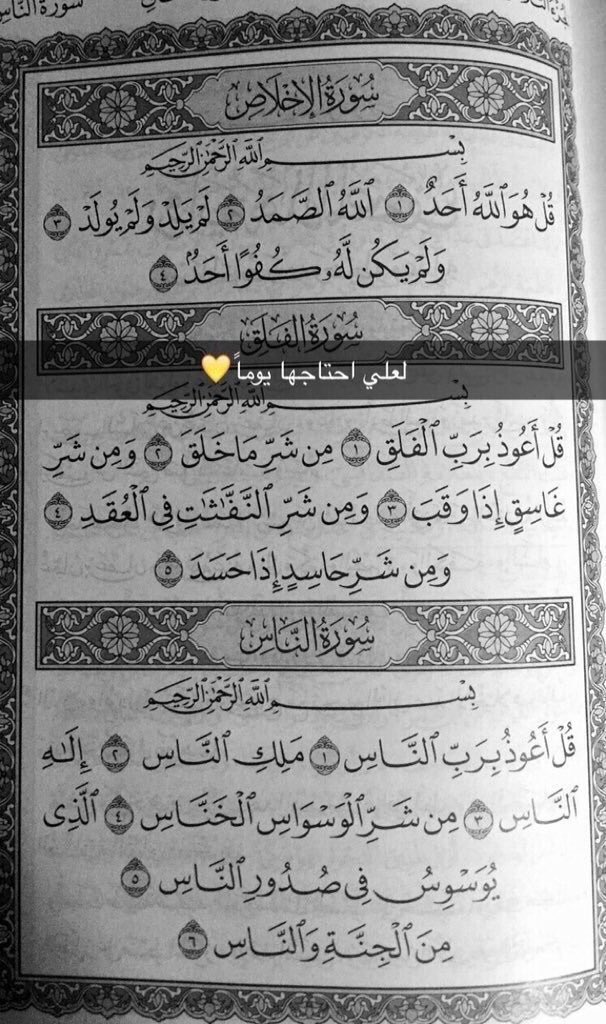 سُورَةُ الإِخْلَاصِ
بِسْمِ ٱللَّهِ ٱلرَّحْمَٰنِ ٱلرَّحِيمِ
قُلْ هُوَ ٱللَّهُ أَحَدٌ ١ ٱللَّهُ ٱلصَّمَدُ ٢ لَمْ يَلِدْ وَلَمْ يُولَدْ ٣
وَلَمْ يَكُن لَّهُۥ كُفُوًا أَحَدٌۢ ٤
سُورَةُ الفَلَقِ
لعلي احتاجها يوماً 💛
بِسْمِ ٱللَّهِ ٱلرَّحْمَٰنِ ٱلرَّحِيمِ
قُلْ أَعُوذُ بِرَبِّ ٱلْفَلَقِ ١ مِن شَرِّ مَا خَلَقَ ٢ وَمِن شَرِّ
غَاسِقٍ إِذَا وَقَبَ ٣ وَمِن شَرِّ ٱلنَّفَّٰثَٰتِ فِى ٱلْعُقَدِ ٤
وَمِن شَرِّ حَاسِدٍ إِذَا حَسَدَ ٥
سُورَةُ النَّاسِ
بِسْمِ ٱللَّهِ ٱلرَّحْمَٰنِ ٱلرَّحِيمِ
قُلْ أَعُوذُ بِرَبِّ ٱلنَّاسِ ١ مَلِكِ ٱلنَّاسِ ٢ إِلَٰهِ
ٱلنَّاسِ ٣ مِن شَرِّ ٱلْوَسْوَاسِ ٱلْخَنَّاسِ ٤ ٱلَّذِى
يُوَسْوِسُ فِى صُدُورِ ٱلنَّاسِ ٥
مِنَ ٱلْجِنَّةِ وَٱلنَّاسِ ٦